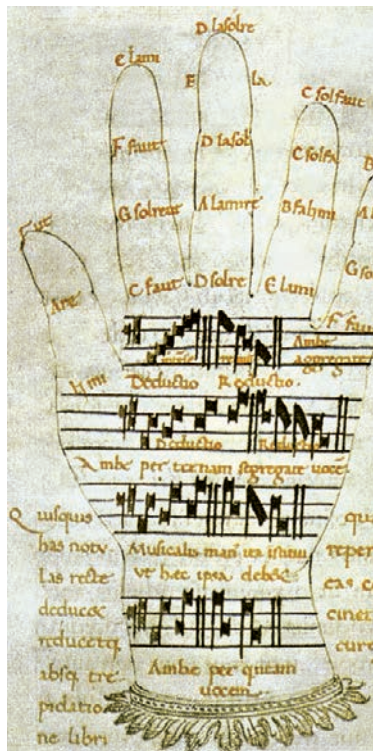 D lasolre
E lami
E la
C solfaut
F faut
D lasol
C solfa
B
G solreut
A lamire
B fahmi
A
Γ ut
G so
C faut
D solre
E lami
F faut
Are
Ambe
aggregate
Hmi
Deductio Reductio.
Deductio Reductio
Ambe per ternam segregate uocem
Quisquis
has notu
las recte
deducet
reducetq
absq tre
pidatio
ne libri
Musicalis man ita
ut hec ipsa debet
Ambe per quintam
uocem
qua
reper
cas c
cinet
cure